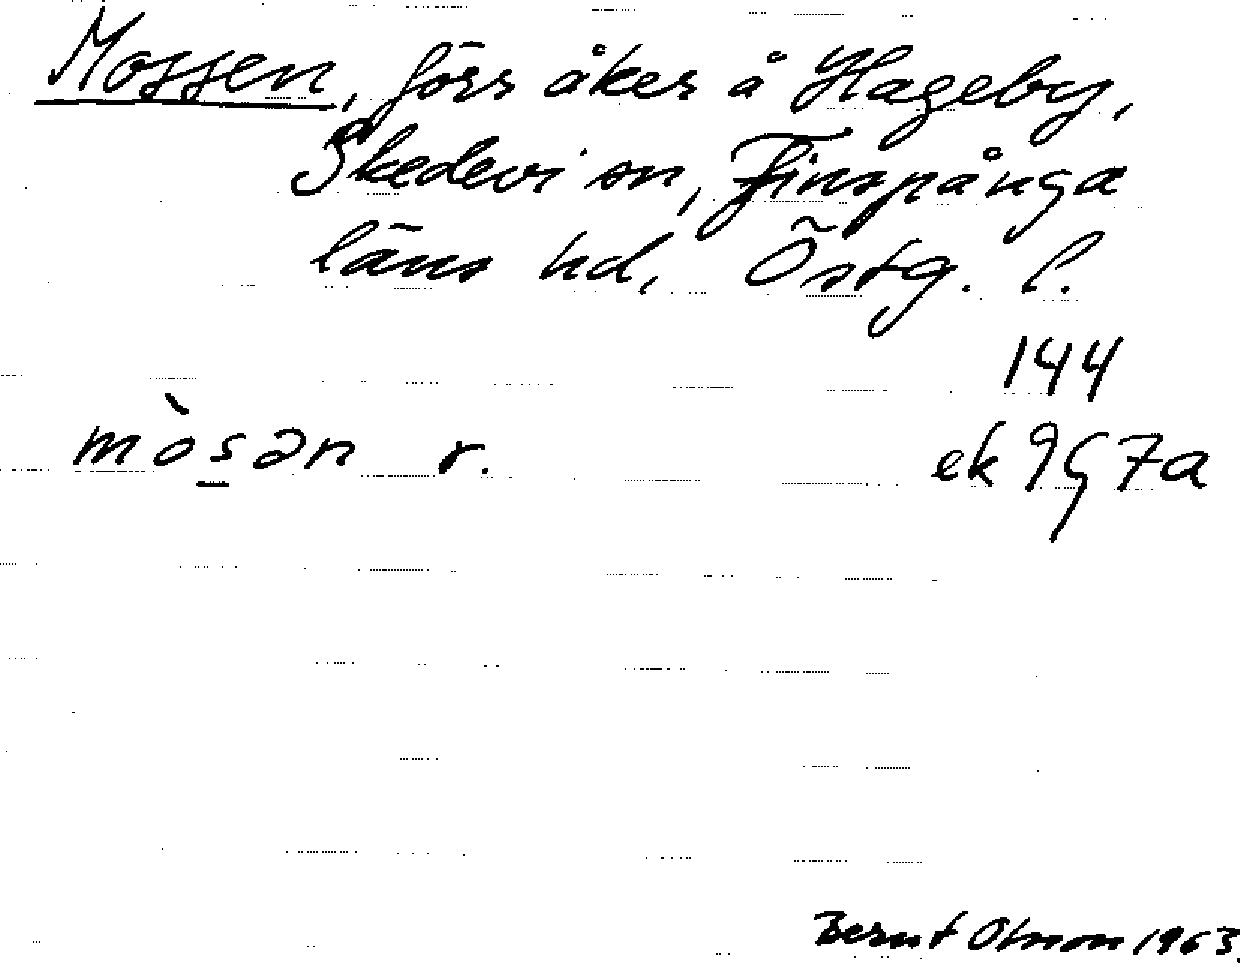 Mossen, förr åker å Hageby,
Skedevi sn, Finspånga
läns hd, Östg. l.
144
mòs̲ən r. ek 9G7a
Bernt Olsson 1963.